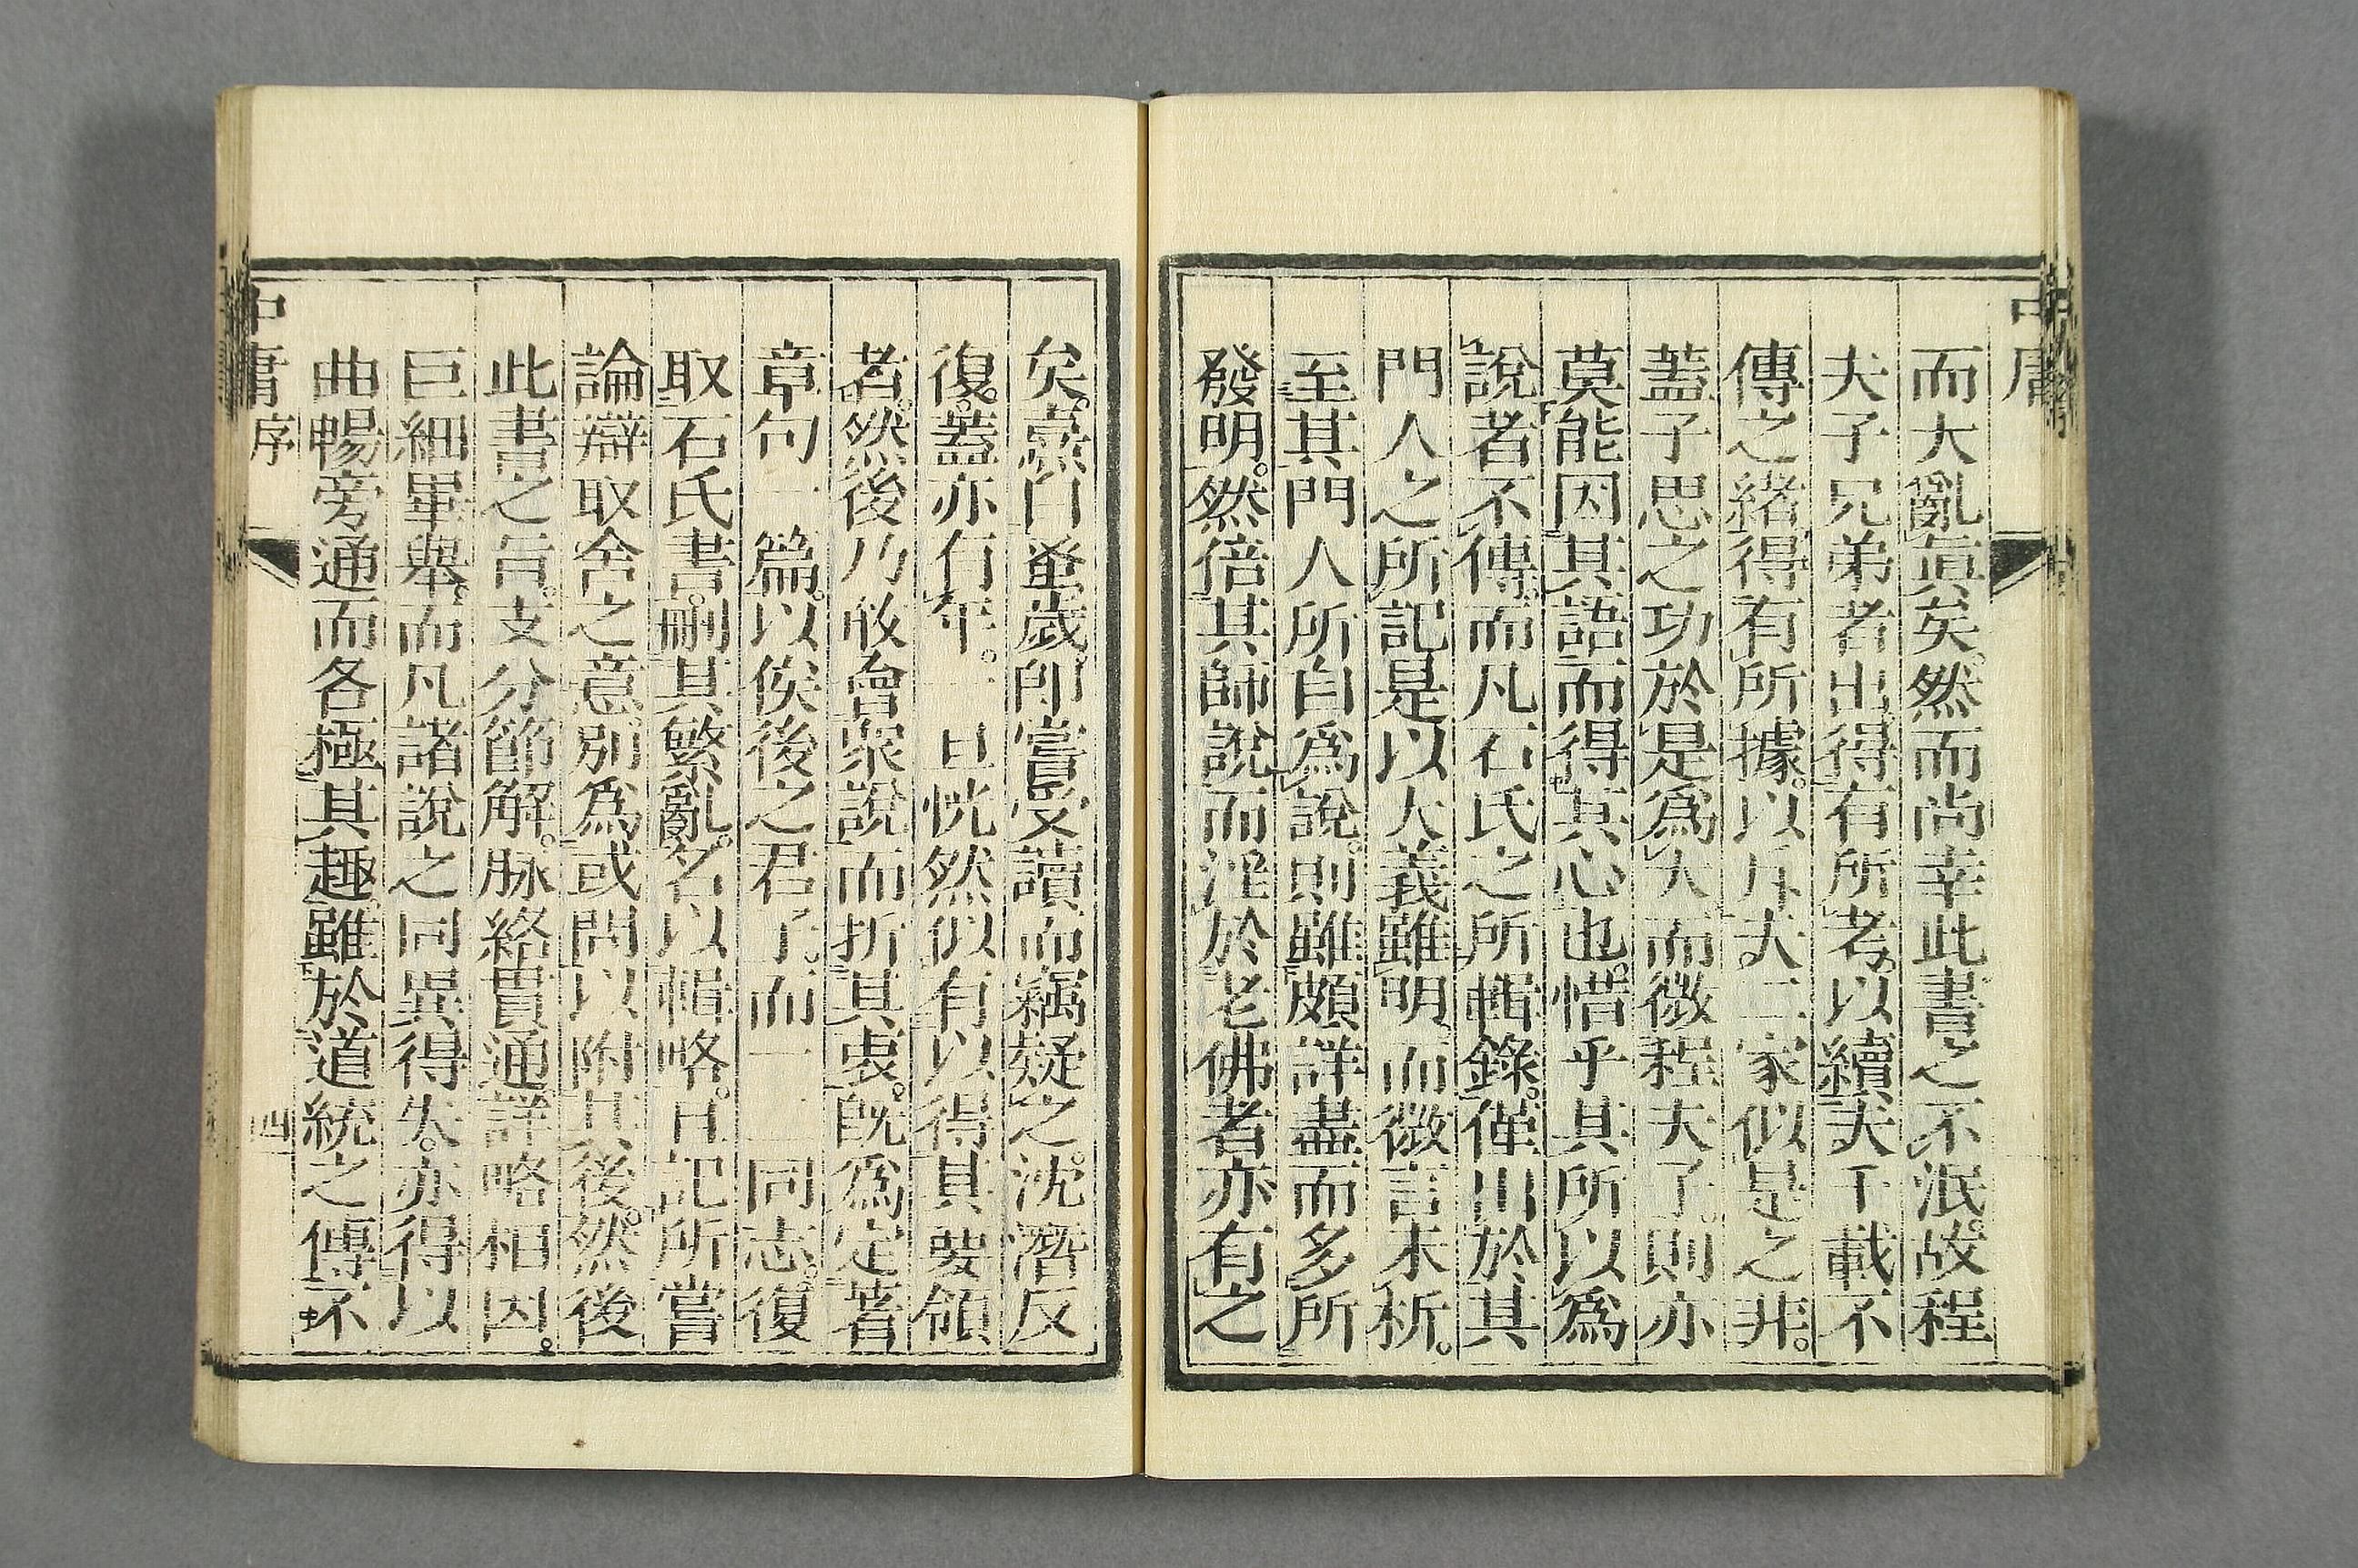 中庸
而大亂眞矣。然而尚幸此書之不泯。故程
夫子兄弟者出。得有所考。以續夫千載不
傳之緒。得有所據。以斥夫二家似是之非。
蓋子思之功於是爲大。而微程夫子。則亦
莫能因其語而得其心也。惜乎其所以爲
說者不傳。而凡石氏之所輯錄。僅出於其
門人之所記。是以大義雖明。而微言未析。
至其門人所自爲說。則雖頗詳盡而多所
發明。然倍其師說而淫於老佛者亦有之
矣。熹自蚤歲。卽嘗受讀而竊疑之。沈潛反
復。蓋亦有年。一旦恍然似有以得其要領
者。然後乃敢會衆說而折其衷。旣爲定著
章句一篇。以俟後之君子。而一二同志。復
取石氏書。刪其繁亂。名以輯略。且記所嘗
論辯取舍之意。別爲或問以附其後。然後
此書之旨。支分節解。脉絡貫通詳略相因。
巨細畢舉。而凡諸說之同異得失。亦得以
曲暢旁通而各極其趣。雖於道統之傳不
中庸序
四